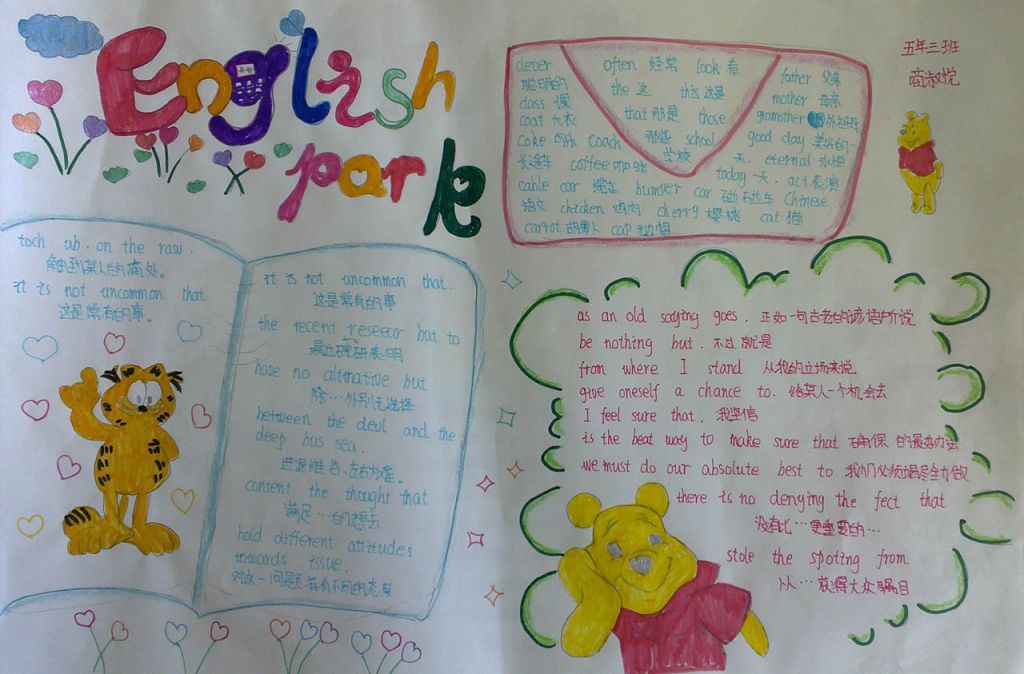 English
park
五年三班
clever often 经常 look 看 father 父亲
聪明的 the 这 this 这是 mother 母亲
class 课 that 那是 those grandmother 外祖母
coat 大衣 那些 school good day 美好的一
coke 可乐 coach 学校 天. eternal 永恒
长途车 coffee 咖啡 today 天. act 表演
cable car 缆车 bumper car 碰碰车 Chinese
语文 chicken 鸡肉 cherry 樱桃 cat 猫
carrot 胡萝卜 cap
toch ub. on the raw.
触到某人的痛处。
it is not uncommon that
这是常有的事。
it is not uncommon that.
这是常有的事
the recent reseear but to
最近 研表明
have no altrnative but
除…外别无选择
between the devl and the
deep bus sea.
进退维谷.左右为难。
content the thought that
满足…的想法
hold different attitudes
towards issue.
对这一问题 有不同的态度
as an old saying goes. 正如一句古老的谚语所说
be nothing but. 不过就是
from where I stand 从我的立场来说
give oneself a chance to. 给某人一个机会去
I feel sure that. 我坚信
is the beat way to make sure that 确保 的最好办法
we must do our absolute best to 我们必须竭尽全力做
there is no denying the fect that
没有比…更重要的…
stole the spoting from
从…获得大众瞩目